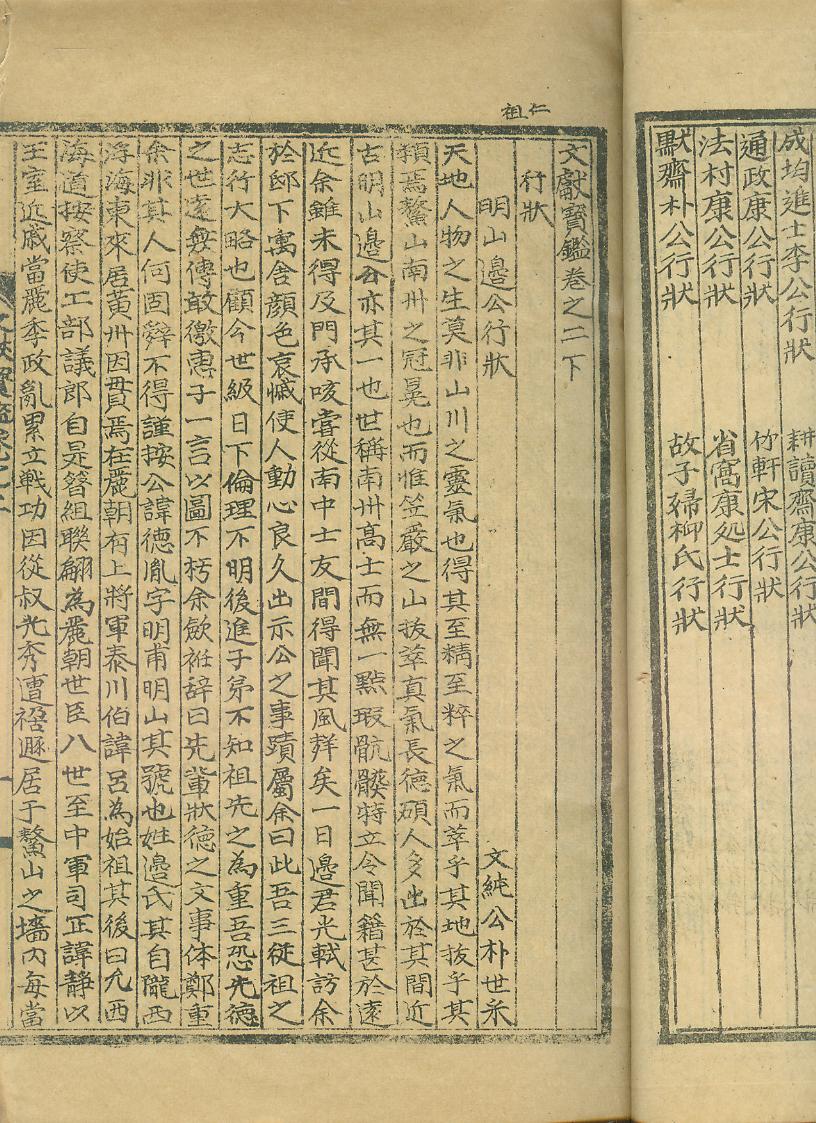 成均進士李公行狀
耕讀齋康公行狀
通政康公行狀
竹軒宋公行狀
法村康公行狀
省窩康処士行狀
默齋朴公行狀
故子婦柳氏行狀
仁祖
文獻寶鑑卷之二下
行狀
明山邊公行狀
文純公朴世采
天地人物之生莫非山川之靈氣也得其至精至粹之氣而萃乎其地拔乎其
類焉鰲山南州之冠冕也而惟笠巖之山拔萃真氣長德碩人多出於其間近
古明山邊公亦其一也世稱南州高士而無一點瑕骯髒特立令聞籍甚於遠
近余雖未得及門承咳嘗從南中士友間得聞其風韻矣一日邊君光軾訪余
於邸下寓舍顔色哀慽使人動心良久出示公之事蹟屬余曰此吾三從祖之
志行大略也顧今世級日下倫理不明後進子弟不知祖先之為重吾恐先德
之世遠無傳敢徼惠子一言以圖不朽余歛袵辞曰先輩狀德之文事体鄭重
余非其人何固辭不得謹按公諱德胤字明甫明山其號也姓邊氏其自隴西
浮海東來居黃州因貫焉在麗朝有上將軍泰川伯諱呂為始祖其後曰允西
海道按察使工部議郎自是簪組聯翩為麗朝世臣八世至中軍司正諱靜以
王室近戚當麗季政亂累立戰功因從叔光秀遭禍遯居于鰲山之墻內每當